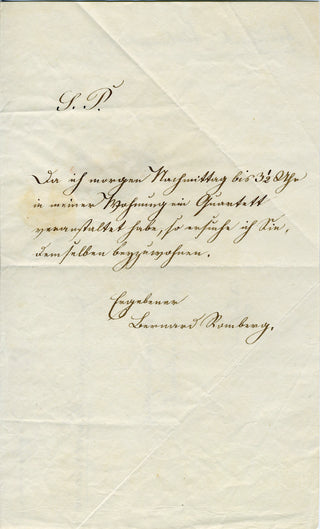 S. P.
Da ich morgen Nachmittag bis 3½ Uhr
in meiner Wohnung ein Quartett
veranstaltet habe, so ersuche ich Sie,
demselben beyzuwohnen.
Ergebener
Bernard Romberg.